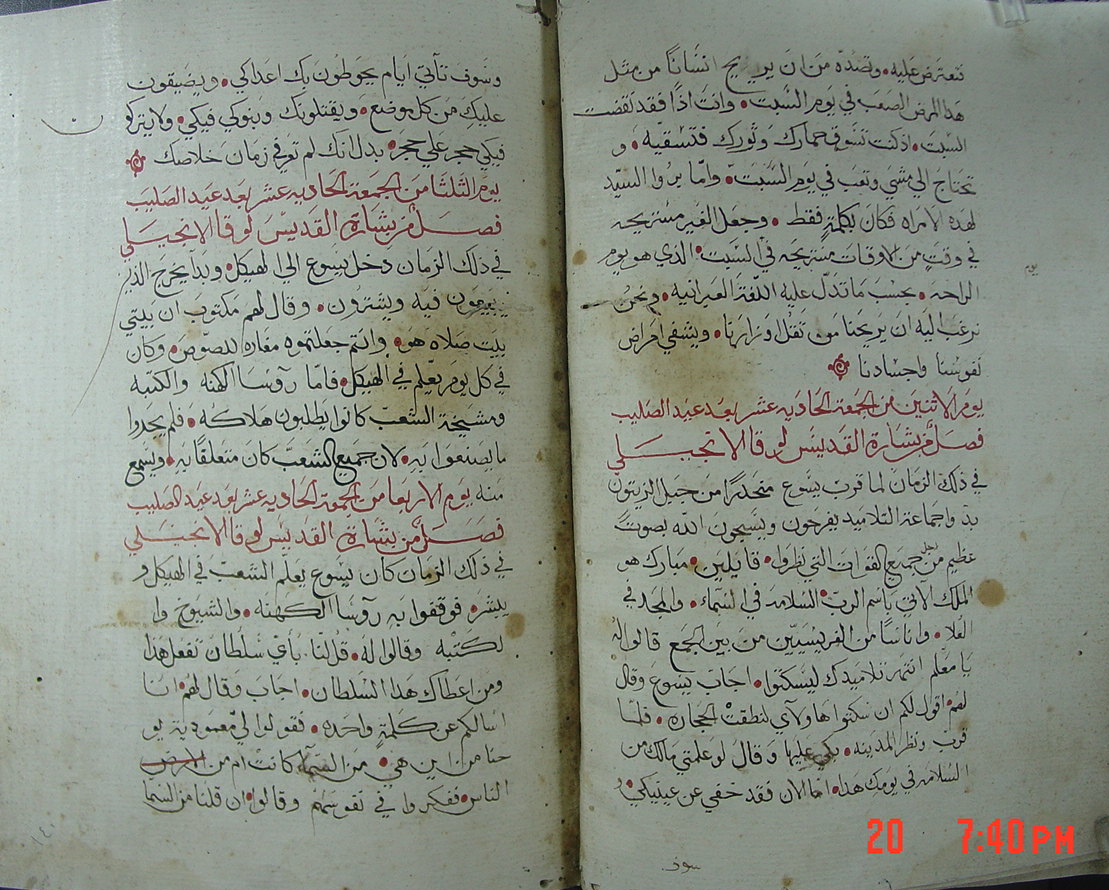 تعترض عليه • وتصده من ان يريح انسانًا من مثل
هذا المرض الصعب في يوم السبت • وانت اذًا فقد نقضت
السبت • اذ كنت تسوق حمارك وثورك فتسقيه • و
تحتاج الي مشي وتعب في يوم السبت • واما بروا السيد
لهذه الامراه فكان بكلمةٍ فقط • وجعل الغير مستريحه
في وقتٍ من الاوقات مستريحه في السبت • الذي هو يوم
الراحه • بحسب ما تدل عليه اللغة العبرانيه • ونحن
نرغب اليه ان يريحنا من ثقل اوزارنا • ويشفي امراض
نفوسنا واجسادنا
يوم الاثنين من الجمعة الحاديه عشر بعد عيد الصليب
فصل من بشارة القديس لوقا الانجيلي
في ذلك الزمان لما قرب يسوع منحدرًا من جبل الزيتون
بدوا جماعة التلاميد يفرحون ويسبحون الله بصوتٍ
عظيم من اجل جميع القوات التي نظروا • قايلين • مبارك هو
الملك الاتي باسم الرب • السلامه في السماء • والمجد في
العلا • وان اناسًا من الفريسيين من بين الجمع قالوا له
يا معلم انتهر تلاميدك ليسكتوا • اجاب يسوع وقال
لهم • اقول لكم ان سكتوا هاولاي لنطقت الحجاره • فلما
قرب ونظر المدينه • بكي عليها وقال لو علمتي مالك من
السلامه في يومك هذا • اما الان فقد خفي عن عينيكي • و
سوف
وسوف تاتي ايام يحوطون بك اعداكي • ويضيقون
عليك من كل موضع • ويقتلونك وبنوكي فيكي • ولا يتركو
فيكي حجر علي حجر • بدل انك لم تعرفي زمان خلاصك
يوم الثلثا من الجمعة الحاديه عشر بعد عيد الصليب
فصل من بشارة القديس لوقا الانجيلي
في ذلك الزمان دخل يسوع الي الهيكل • وبدا يخرج الذين
يبيعون فيه ويشترون • وقال لهم مكتوب ان بيتي
بيت صلاه هو • وانتم جعلتموه مغاره للصوص • وكان
في كل يوم يعلم في الهيكل • فاما روسا الكهنه والكتبه
ومشيخة الشعب كانوا يطلبون هلاكه • فلم يجدوا
ما يصنعوا به • لان جميع الشعب كان متعلقًا به • ويسمع
منه يوم الاربعا من الجمعة الحاديه عشر بعد عيد الصليب
فصل من بشارة القديس لوقا الانجيلي
في ذلك الزمان كان يسوع يعلم الشعب في الهيكل و
يبشر • فوقفوا به روسا الكهنه • والشيوخ وا
لكتبه وقالوا له • قل لنا باي سلطان تفعل هذا
ومن اعطاك هذا السلطان • اجاب وقال لهم • انا
اسالكم عن كلمةٍ واحده • فقولوا لي معمودية يو
حنا من اين هي • من السماء كانت ام من الارض
الناس • ففكروا في نفوسهم وقالوا • ان قلنا من السما
١٤٠
20 7:40 PM